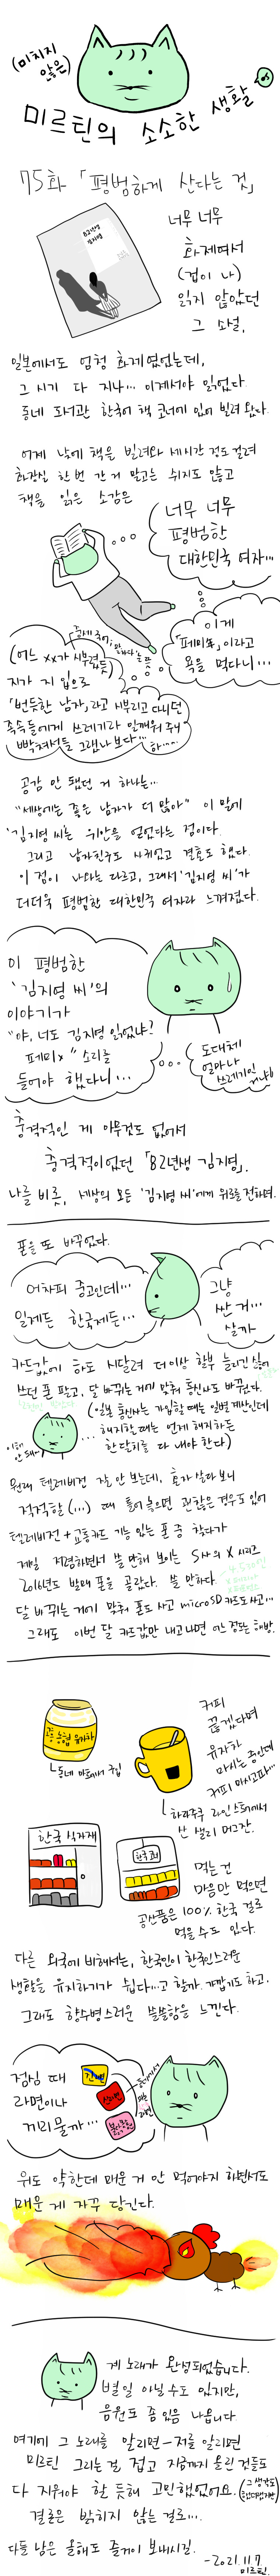 (미치지
않은)
미르틴의 소소한 생활
75화 「평범하게 산다는 것」
82년생
김지영
너무 너무
화제여서
(겁이 나)
읽지 않았던
그 소설,
일본에서도 엄청 화제였었는데,
그 시기 다 지나... 이제서야 읽었다.
동네 도서관 한국어 책 코너에 있어 빌려 왔다.
어제 낮에 책을 빌려와 세시간 정도 걸려
화장실 한 번 간 거 말고는 쉬지도 않고
책을 읽은 소감은
너무 너무
평범한
대한민국 여자...
이게
「페미x」이라고
욕을 먹다니...
(어느 xx가 시부렸듯
지가 지 입으로
「번듯한 남자」라고 시부리고 다니던
족속들에게 쓰레기라 일깨워 주니
빡쳐서들 그랬나 보다... 하...
공감 안 됐던 거 하나는...
"세상에는 좋은 남자가 더 많아" 이 말에
'김지영 씨'는 위안을 얻었다는 점이다.
그리고 남자친구도 사귀었고 결혼도 했다.
이 점이 나와는 다르고, 그래서 '김지영 씨'가
더더욱 평범한 대한민국 여자라 느껴졌다.
이 평범한
'김지영 씨'의
이야기가
"야, 너도 김지영 읽었냐?
페미x" 소리를
들어야 했다니...
도대체
얼마나
쓰레기인
거냐!!
충격적인 게 아무것도 없어서
충격적이었던 「82년생 김지영」.
나를 비롯, 세상의 모든 '김지영 씨'에게 위로를 전하며.
폰을 또 바꾸었다.
어차피 중고인데...
일제든 한국제든...
그냥
싼 거...
살까
카드값에 하도 시달려 더 이상 할부 늘리긴 싫어
쓰던 폰 팔고, 달 바뀌는 거에 맞춰 통신사도 바꾸었다.
(일본 통신사는 가입할 때는 일별 계산인데
... 해지할 때는 언제 해지하든
한 달치를 다 내야 한다)
이해
안 돼...
원래 텔레비전 잘 안 보는데, 혼자 살다 보니
적적할 (...) 때 틀어 놓으면 괜찮은 경우도 있어
텔레비전 + 교통카드 기능 있는 폰 중 찾다가
제일 저렴하면서 쓸 만해 보이는 S사의 X 시리즈
2016년도 발매 폰을 골랐다. 쓸 만하다.
달 바뀌는 거에 맞춰 폰도 사고 microSD 카드도 사고...
그래도 이번 달 카드값만 내고 나면 어느 정도는 해방.
고흥 농협 유자차
동네 마트에서 구입
커피
끊겠다며
유자차
마시는 중인데
커피 마시고파...
하라주쿠 라인 스토어에서
산 샐리 머그잔.
한국 식자재
한국 코너
먹는 건
마음만 먹으면
공산품은 100% 한국 걸로
먹을 수도 있다.
다른 외국에 비해서는, 한국인이 한국인스러운
생활을 유지하기가 쉽다...고 할까. 가깝기도 하고.
그래도 향수병스러운 쓸쓸함을 느낀다.
점심 때
라면이나
끼리물까...
진라면
신라면
불닭볶음
위도 약한데 매운 거 안 먹어야지 하면서도
매운 게 자꾸 당긴다.
제 노래가 완성되었습니다.
별일 아닐 수도 있지만,
음원도 좀 있음 나옵니다
여기에 그 노래를 알리면 - 저를 알리면
미르틴 그리는 걸 접고 지금까지 올린 것들도
다 지워야 할 듯해 고민했었어요.
결론은 밝히지 않는 걸로...
다들 남은 올해도 즐거이 보내시길.
-2021.11.7.
미르틴.